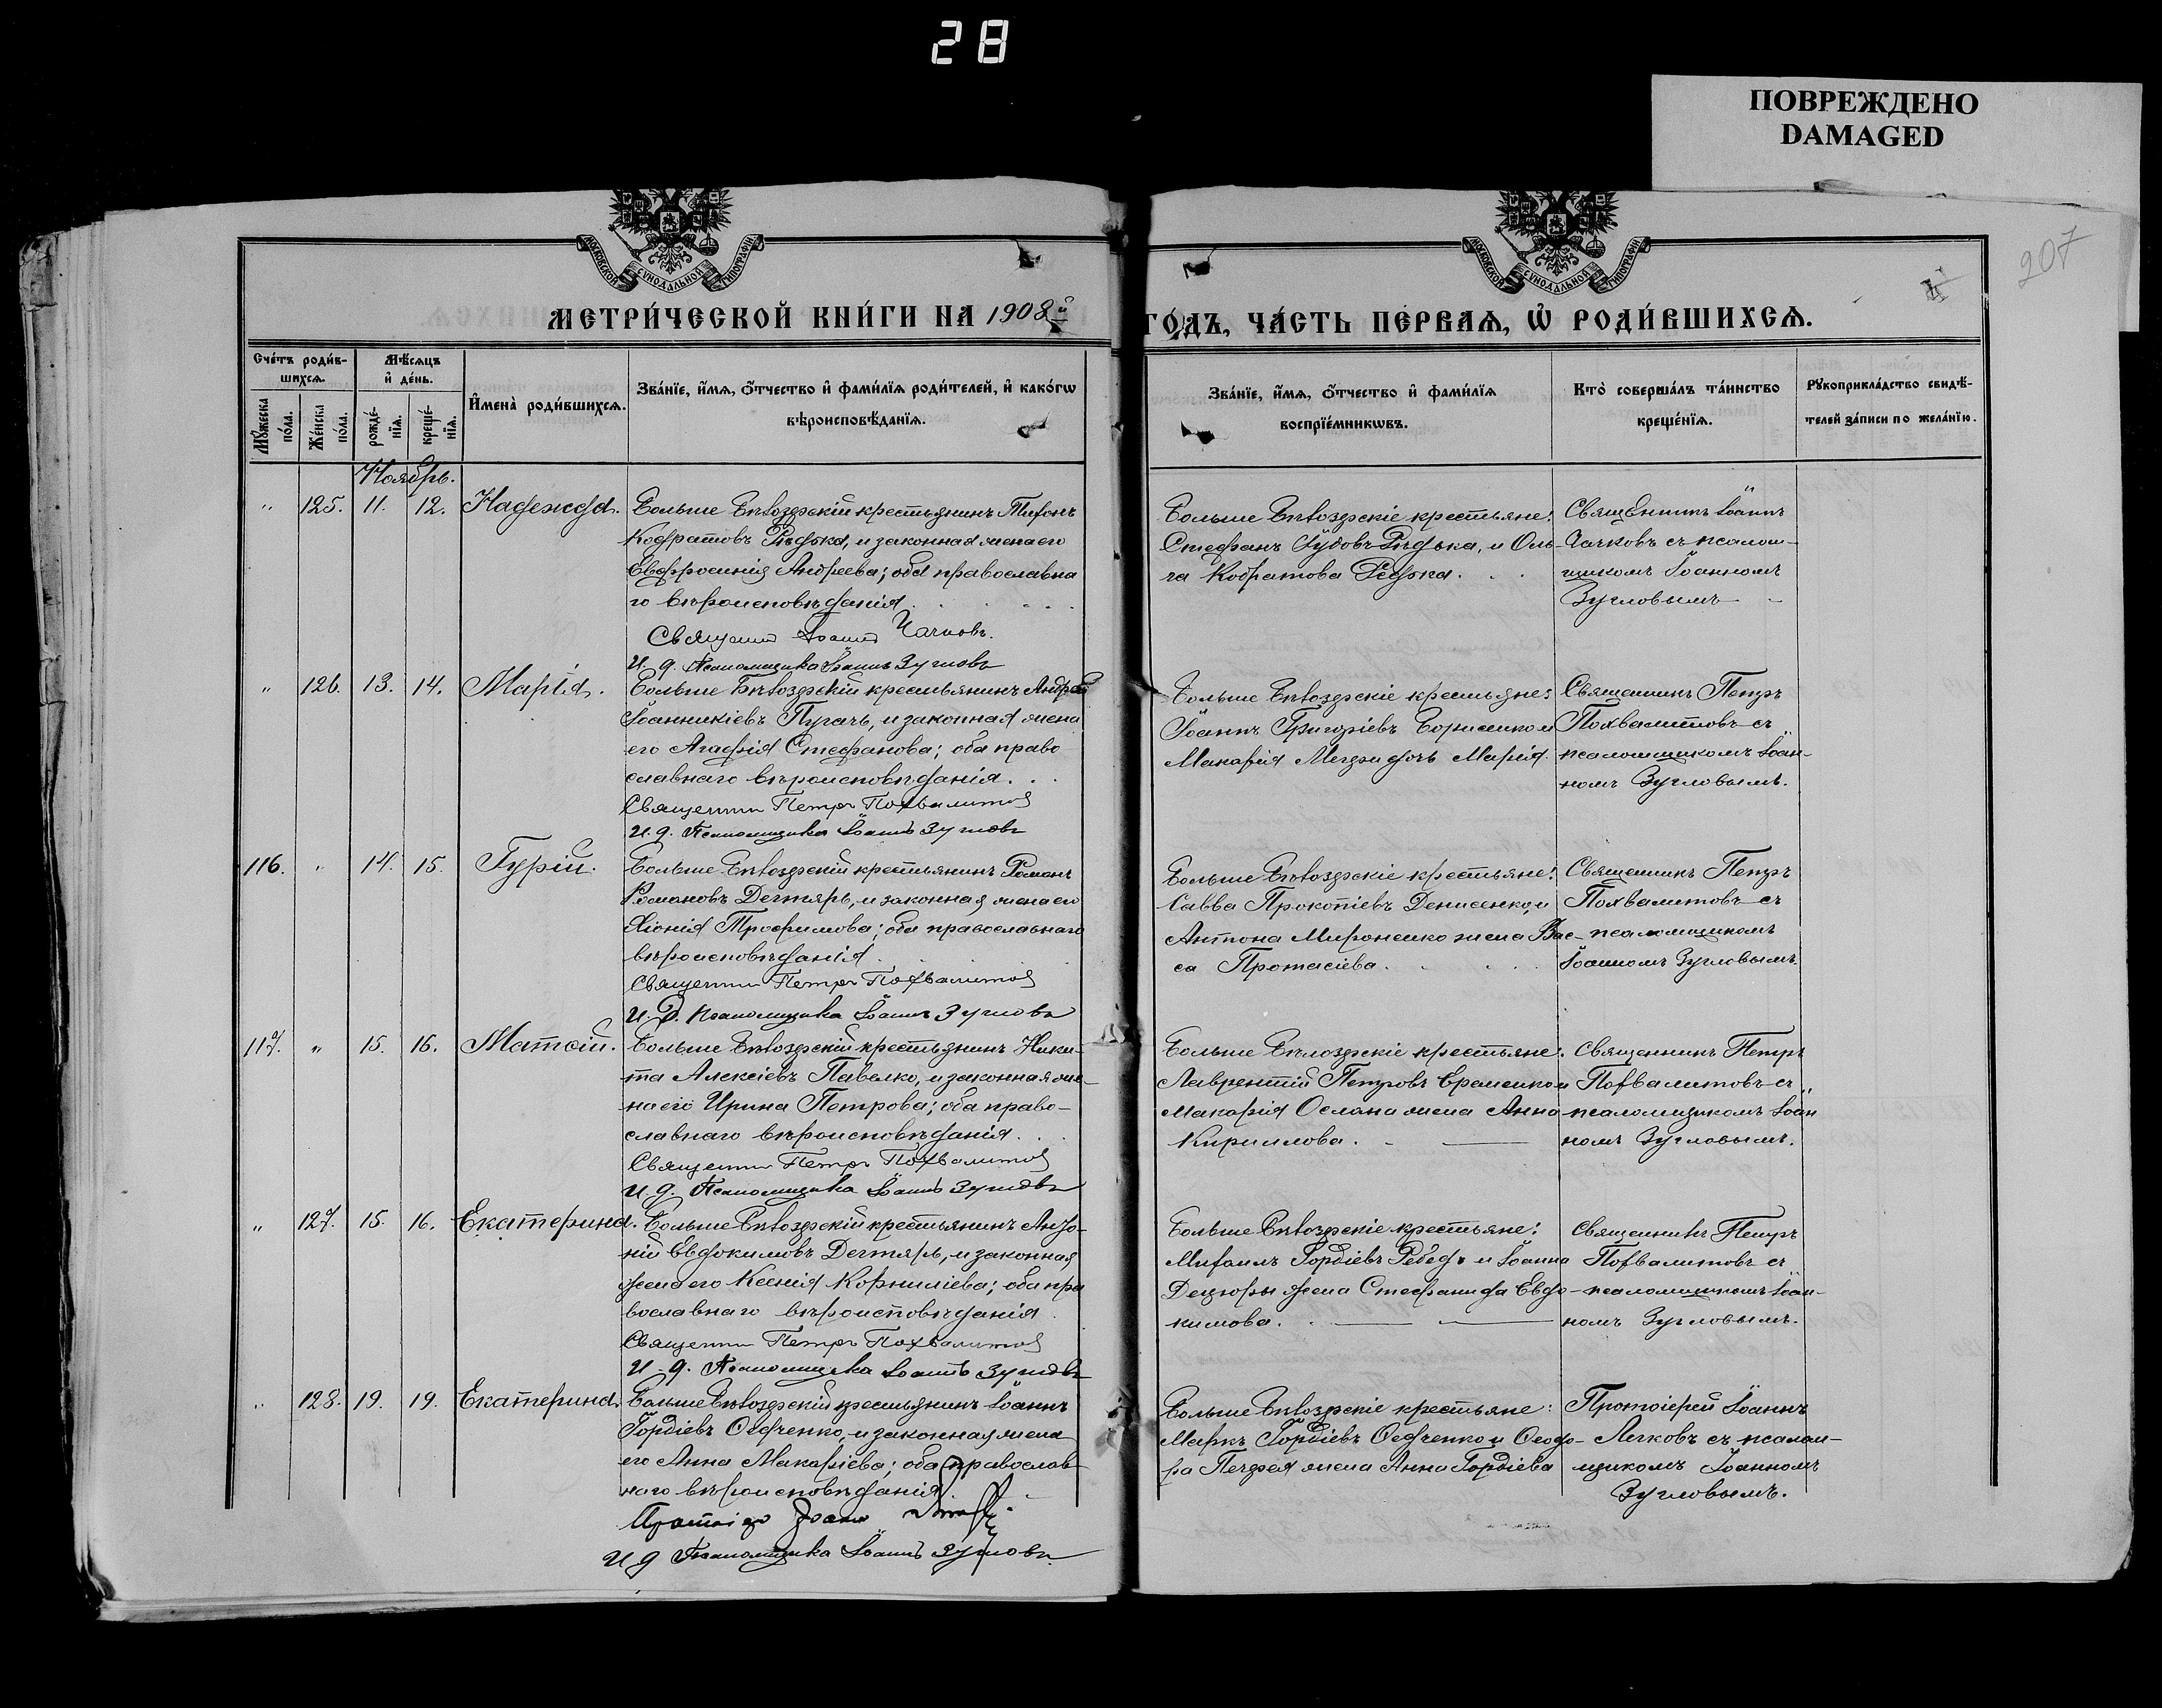 28
ПОВРЕЖДЕНО
DAMAGED
207
МОСКОВСКОЙ СУНОДАЛЬНОЙ ТИПОГРАФІИ
МОСКОВСКОЙ СУНОДАЛЬНОЙ ТИПОГРАФІИ
МЕТРИ́ЧЕСКОЙ КНИ́ГИ НА 1908й
ГО́ДЪ, ЧА́СТЬ ПЕ́РВАѦ, Ѡ҆ РОДИ́ВШИХСѦ.
Сче́тъ роди́вшихсѧ.
Мꙋ́жеска по́ла.
Же́нска по́ла.
Мѣ́сѧцъ и҆ де́нь.
рожде́нїѧ.
креще́нїѧ.
И҆мена̀ роди́вшихсѧ.
Зва́нїе, и҆́мѧ, ѻ҆́тчество и҆ фами́лїѧ роди́телей, и҆ како́гѡ
вѣроисповѣ́данїѧ.
Зва́нїе, и҆́мѧ, ѻ҆́тчество и҆ фами́лїѧ
воспрїе́мникѡвъ.
Кто̀ соверша́лъ та́инство
креще́нїѧ.
Рꙋкоприкла́дство свидѣ́-
телей за́писи по жела́нїю.
Ноябрь.
" 125. 11. 12. Надежда.
Больше Бѣлозерскій крестьянинъ Тихонъ
Кодратовъ Рѣдька, и законная жена его
Евфросинія Андреева; оба православна
го вѣроисповѣданія.
Священн Іоаннъ Чачковъ.
И. д. Псаломщика Іоаннъ Зугловъ
Больше Бѣлозерскіе крестьяне:
Стефанъ Іудовъ Рѣдька, и Оль-
га Кодратова Рѣдька.
Священникъ Іоаннъ
Чачковъ съ псалом-
щикомъ Іоанномъ
Зугловымъ
" 126. 13. 14. Марія.
Больше Бѣлозерскій крестьянинъ Андрей
Іоанникіевъ Пугачъ, и законная жена
его Агафія Стефанова; оба право
славнаго вѣроисповѣданія.
Священникъ Петръ Похвалитовъ
И. д. Псаломщика Іоаннъ Зугловъ
Больше Бѣлозерскіе крестьяне:
Іоаннъ Григоріевъ Борисенко и
Макарія дочь Марія.
Священникъ Петръ
Похвалитовъ съ
псаломщикомъ Іоан-
номъ Зугловымъ.
116. " 14. 15. Гурій.
Больше Бѣлозерскій крестьянинъ Романъ
Романовъ Дегтярь, и законная жена его
Хіонія Трофимова; оба православнаго
вѣроисповѣданія.
Священникъ Петръ Похвалитовъ
И. Д. Псаломщика Іоаннъ Зугловъ
Больше Бѣлозерскіе крестьяне:
Савва Прокопіевъ Денисенко, и
Антона Мироненко жена Вас-
са Протасіева.
Священникъ Петръ
Похвалитовъ съ
псаломщикомъ
Іоанномъ Зугловымъ.
117. " 15. 16. Матѳій.
Больше Бѣлозерскій крестьянинъ Ники-
та Алексіевъ Павелко, и законная же-
на его Ирина Петрова; оба право-
славнаго вѣроисповѣданія.
Священникъ Петръ Похвалитовъ
И. д. Псаломщика Іоаннъ Зугловъ
Больше Бѣлозерскіе крестьяне:
Лаврентій Петровъ Еременко и
Макарія Ослана жена Анна
Кириллова.
Священникъ Петръ
Похвалитовъ съ
псаломщикомъ Іоан
номъ Зугловымъ.
" 127. 15. 16. Екатерина.
Больше Бѣлозерскій крестьянинъ Анѳо-
ній Евдокимовъ Дегтярь, и законная
жена его Ксенія Корниліева; оба пра
вославнаго вѣроисповѣданія.
Священникъ Петръ Похвалитовъ
И. д. Псаломщика Іоаннъ Зугловъ
Больше Бѣлозерскіе крестьяне:
Михаилъ Гордіевъ и Іоанна
Децюры жена Стефанида Евдо-
кимова.
Священникъ Петръ
Похвалитовъ съ
псаломщикомъ Іоан-
номъ Зугловымъ.
" 128. 19. 19. Екатерина.
Больше Бѣлозерскій крестьянинъ Іоаннъ
Гордіевъ Ѳедченко, и законная жена
его Анна Макаріева; оба православ
наго вѣроисповѣданія.
Протоіер Іоаннъ
И д Псаломщика Іоаннъ Зугловъ
Больше Бѣлозерскіе крестьяне:
Маркъ Гордіевъ Ѳедченко и Ѳеодо-
ра жена Анна Гордіева
Протоіерей Іоаннъ
Личковъ съ псалом-
щикомъ Іоанномъ
Зугловымъ.